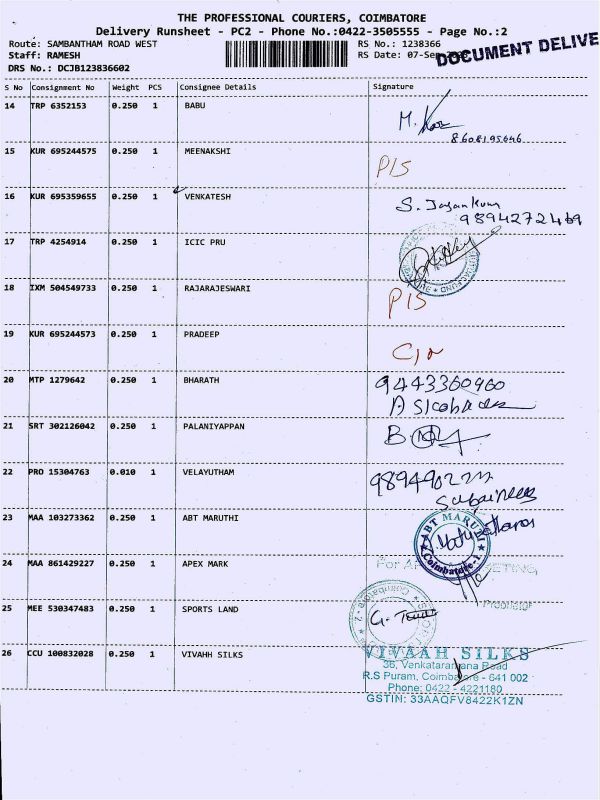 THE PROFESSIONAL COURIERS, COIMBATORE
Delivery Runsheet - PC2 - Phone No.:0422-3505555 - Page No.:2
Route: SAMBANTHAM ROAD WEST RS No.: 1238366
Staff: RAMESH RS Date: 07-Sep
DRS No.: DCJB123836602
DOCUMENT DELIVE
S No Consignment No Weight PCS Consignee Details Signature
14 TRP 6352153 0.250 1 BABU
8608195646
15 KUR 695244575 0.250 1 MEENAKSHI P/S
16 KUR 695359655 0.250 1 VENKATESH
9894272469
17 TRP 4254914 0.250 1 ICIC PRU
18 IXM 504549733 0.250 1 RAJARAJESWARI P/S
19 KUR 695244573 0.250 1 PRADEEP
20 MTP 1279642 0.250 1 BHARATH 9443360960
21 SRT 302126042 0.250 1 PALANIYAPPAN
22 PRO 15304763 0.010 1 VELAYUTHAM
23 MAA 103273362 0.250 1 ABT MARUTHI
ABT MARUTI
Coimbatore-1
24 MAA 861429227 0.250 1 APEX MARK
Proprietor
25 MEE 530347483 0.250 1 SPORTS LAND
Coimbatore - 2
26 CCU 100832028 0.250 1 VIVAHH SILKS
VIVAAH SILKS
36, Venkataramana Road
R.S Puram, Coimbatore - 641 002
Phone: 0422 - 4221180
GSTIN: 33AAQFV8422K1ZN